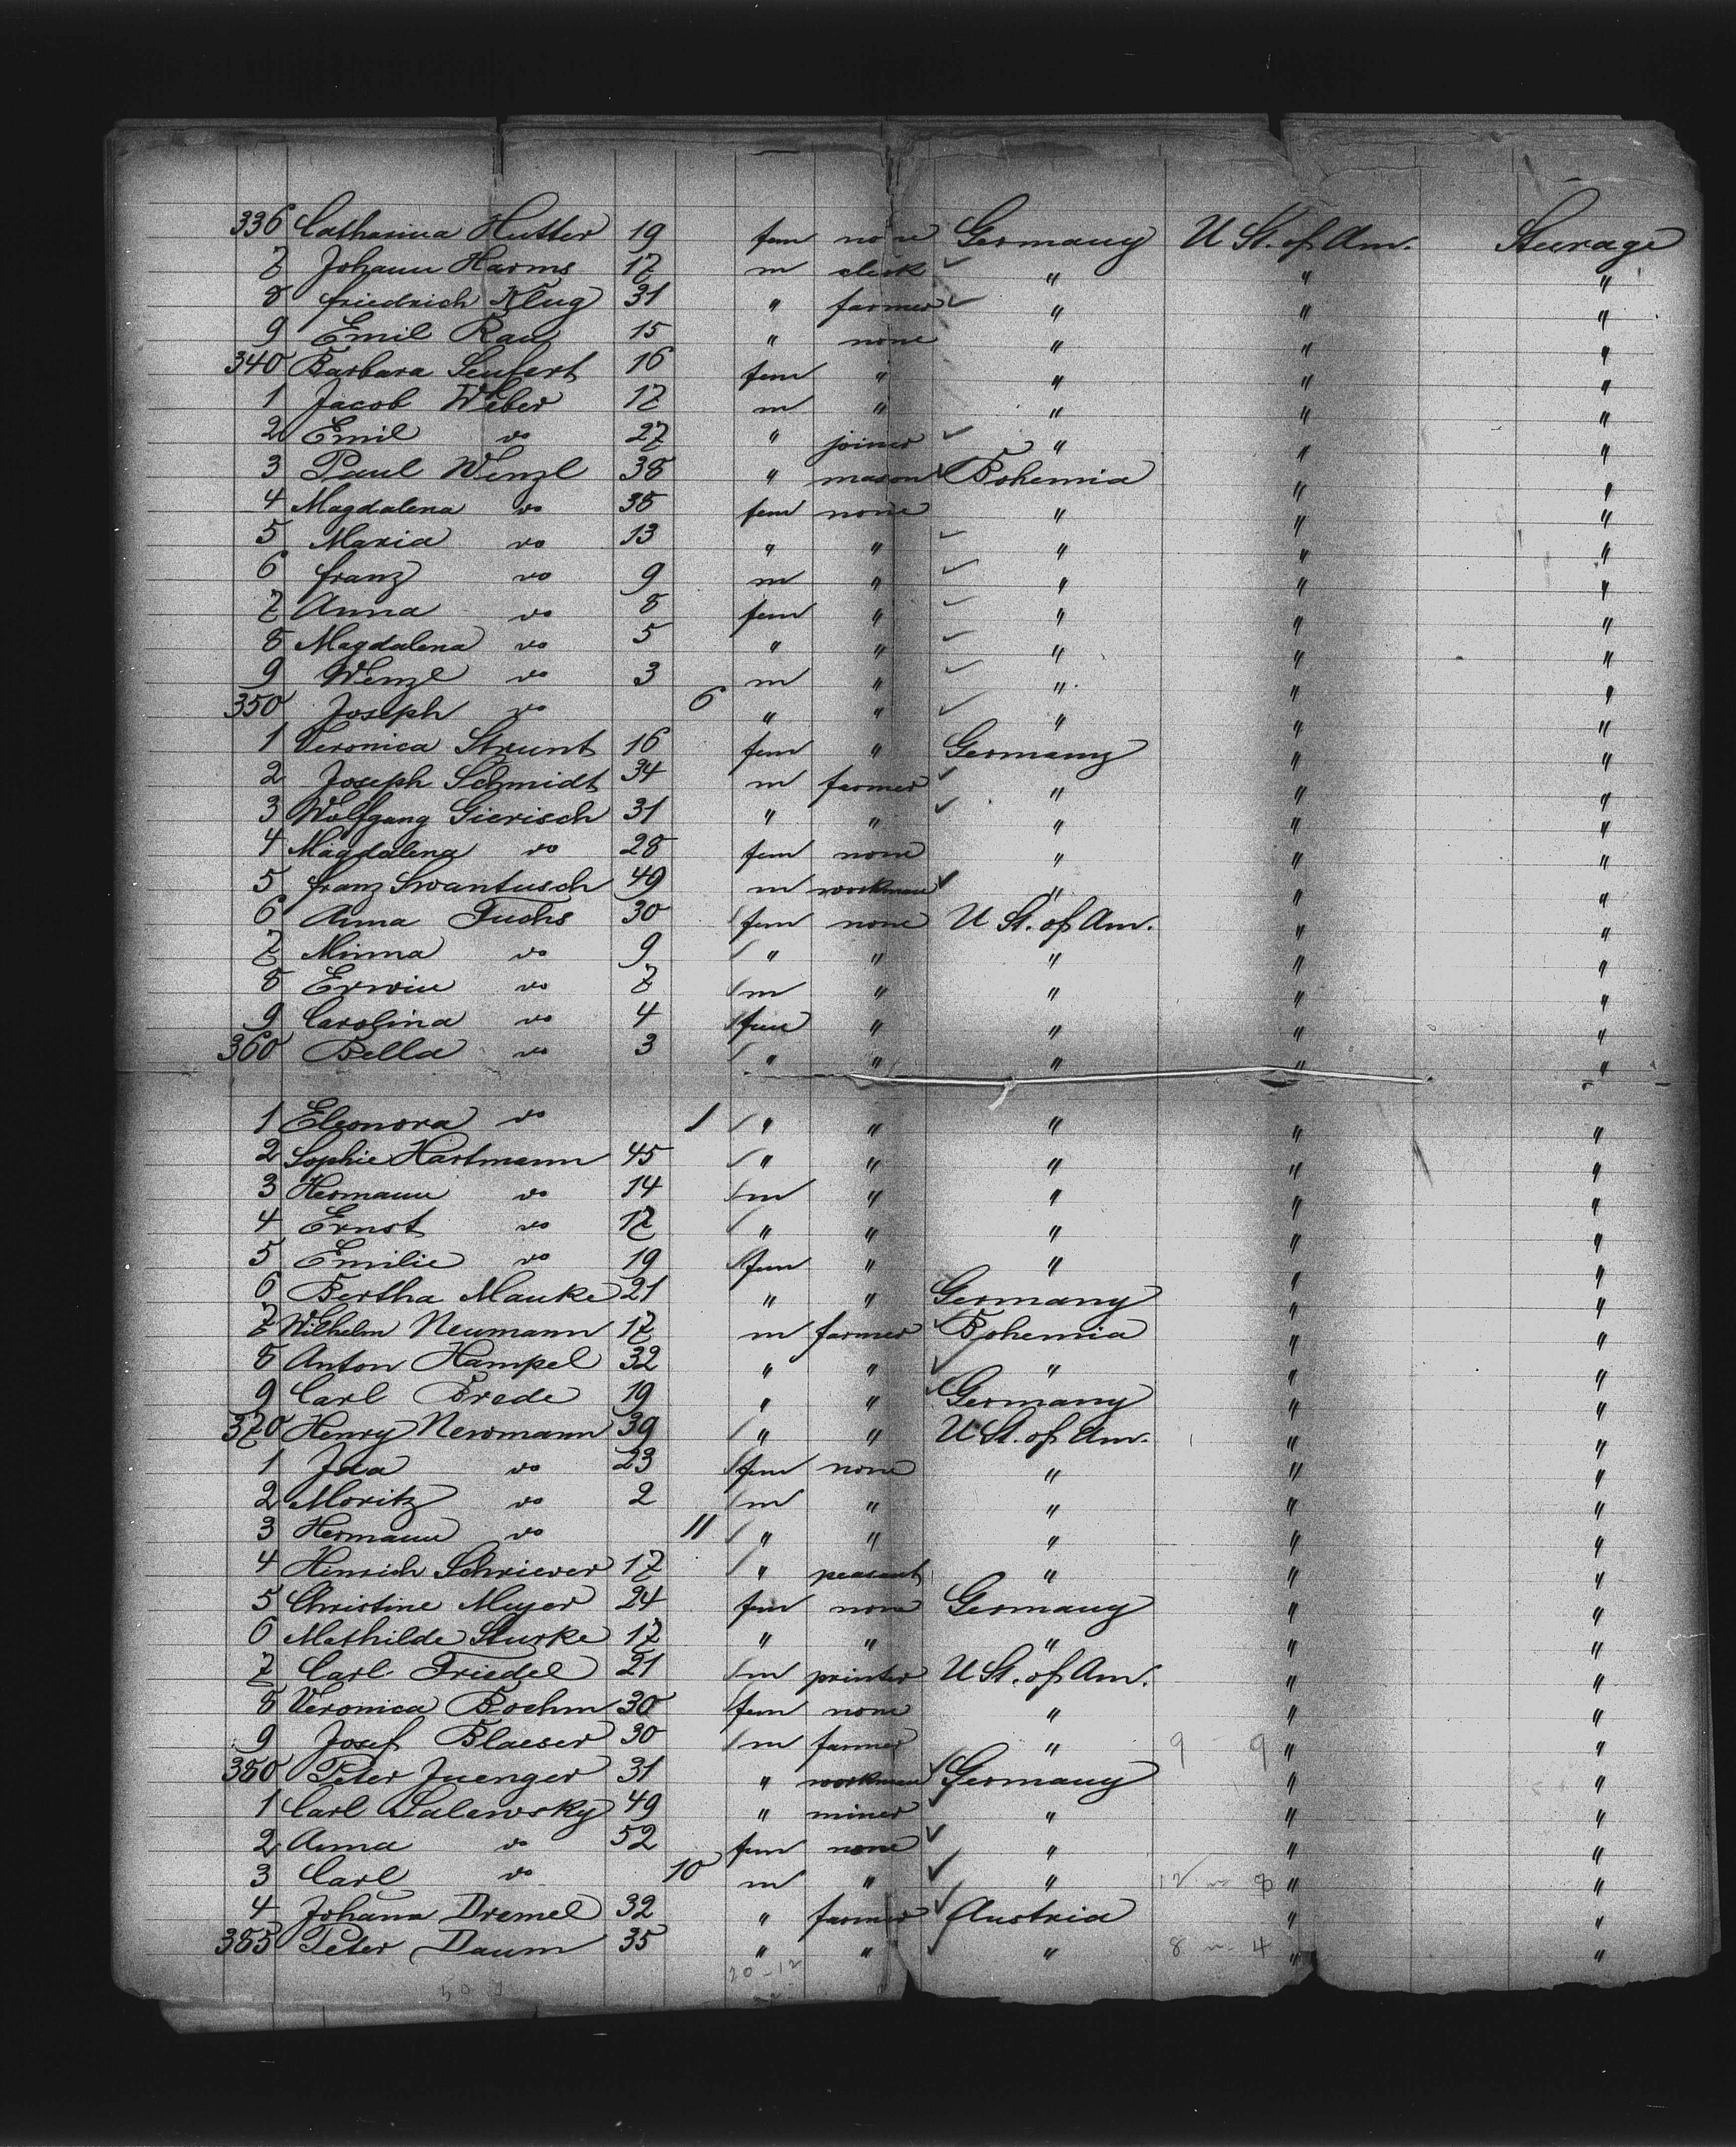 336 Catharina Hutter 19 fem none Germany U St. of Am. Steerage
7 Johann Harms 17 m clerk " " "
8 friedrich Klug 31 " farmer " " "
9 Emil Rau 15 " none " " "
340 Barbara Seufert 16 fem " " " "
1 Jacob Weber 17 m " " " "
2 Emil do 27 " joiner " " "
3 Paul Wenzl 38 " mason Bohemia " "
4 Magdalena do 38 fem none " " "
5 Maria do 13 " " " " "
6 franz do 9 m " " " "
7 Anna do 8 fem " " " "
8 Magdalena do 5 " " " " "
9 Wenzl do 3 m " " " "
350 Joseph do 6 " " " " "
1 Veronica Strunt 16 fem " Germany " "
2 Joseph Schmidt 34 m farmer " " "
3 Wolfgang Gierisch 31 " " " " "
4 Magdalena do 28 fem none " " "
5 franz Swantusch 49 m workman " " "
6 Anna Fuchs 30 fem none U St. of Am. " "
7 Minna do 9 " " " " "
8 Erwin do 7 m " " " "
9 Carolina do 4 fem " " " "
360 Bella do 3 " " " " "
1 Eleonora do 1 " " " " "
2 Sophie Hartmann 45 " " " " "
3 Hermann do 14 m " " " "
4 Ernst do 17 " " " " "
5 Emilie do 19 fem " " " "
6 Bertha Mauke 21 " " Germany " "
7 Wilhelm Neumann 17 m farmer Bohemia " "
8 Anton Hampel 32 " " " " "
9 Carl Brede 19 " " Germany " "
370 Henry Newmann 39 " " U St. of Am. " "
1 Ida do 23 fem none " " "
2 Moritz do 2 m " " " "
3 Hermann do 11 " " " " "
4 Hinrich Schriever 17 " peasant " " "
5 Christine Meyer 24 fem none Germany " "
6 Mathilde Sturke 17 " " " " "
7 Carl Friedel 21 m printer U St. of Am. " "
8 Veronica Boehm 30 fem none " " "
9 Josef Blaeser 30 m farmer " 9 9 " "
380 Peter Juenger 31 " workman Germany " "
1 Carl Salewsky 49 " miner " " "
2 Anna do 52 fem none " " "
3 Carl do 10 m " " " "
4 Johann Dremel 32 " farmer Austria " "
385 Peter Daum 35 " " " 8 4 " "
20-12